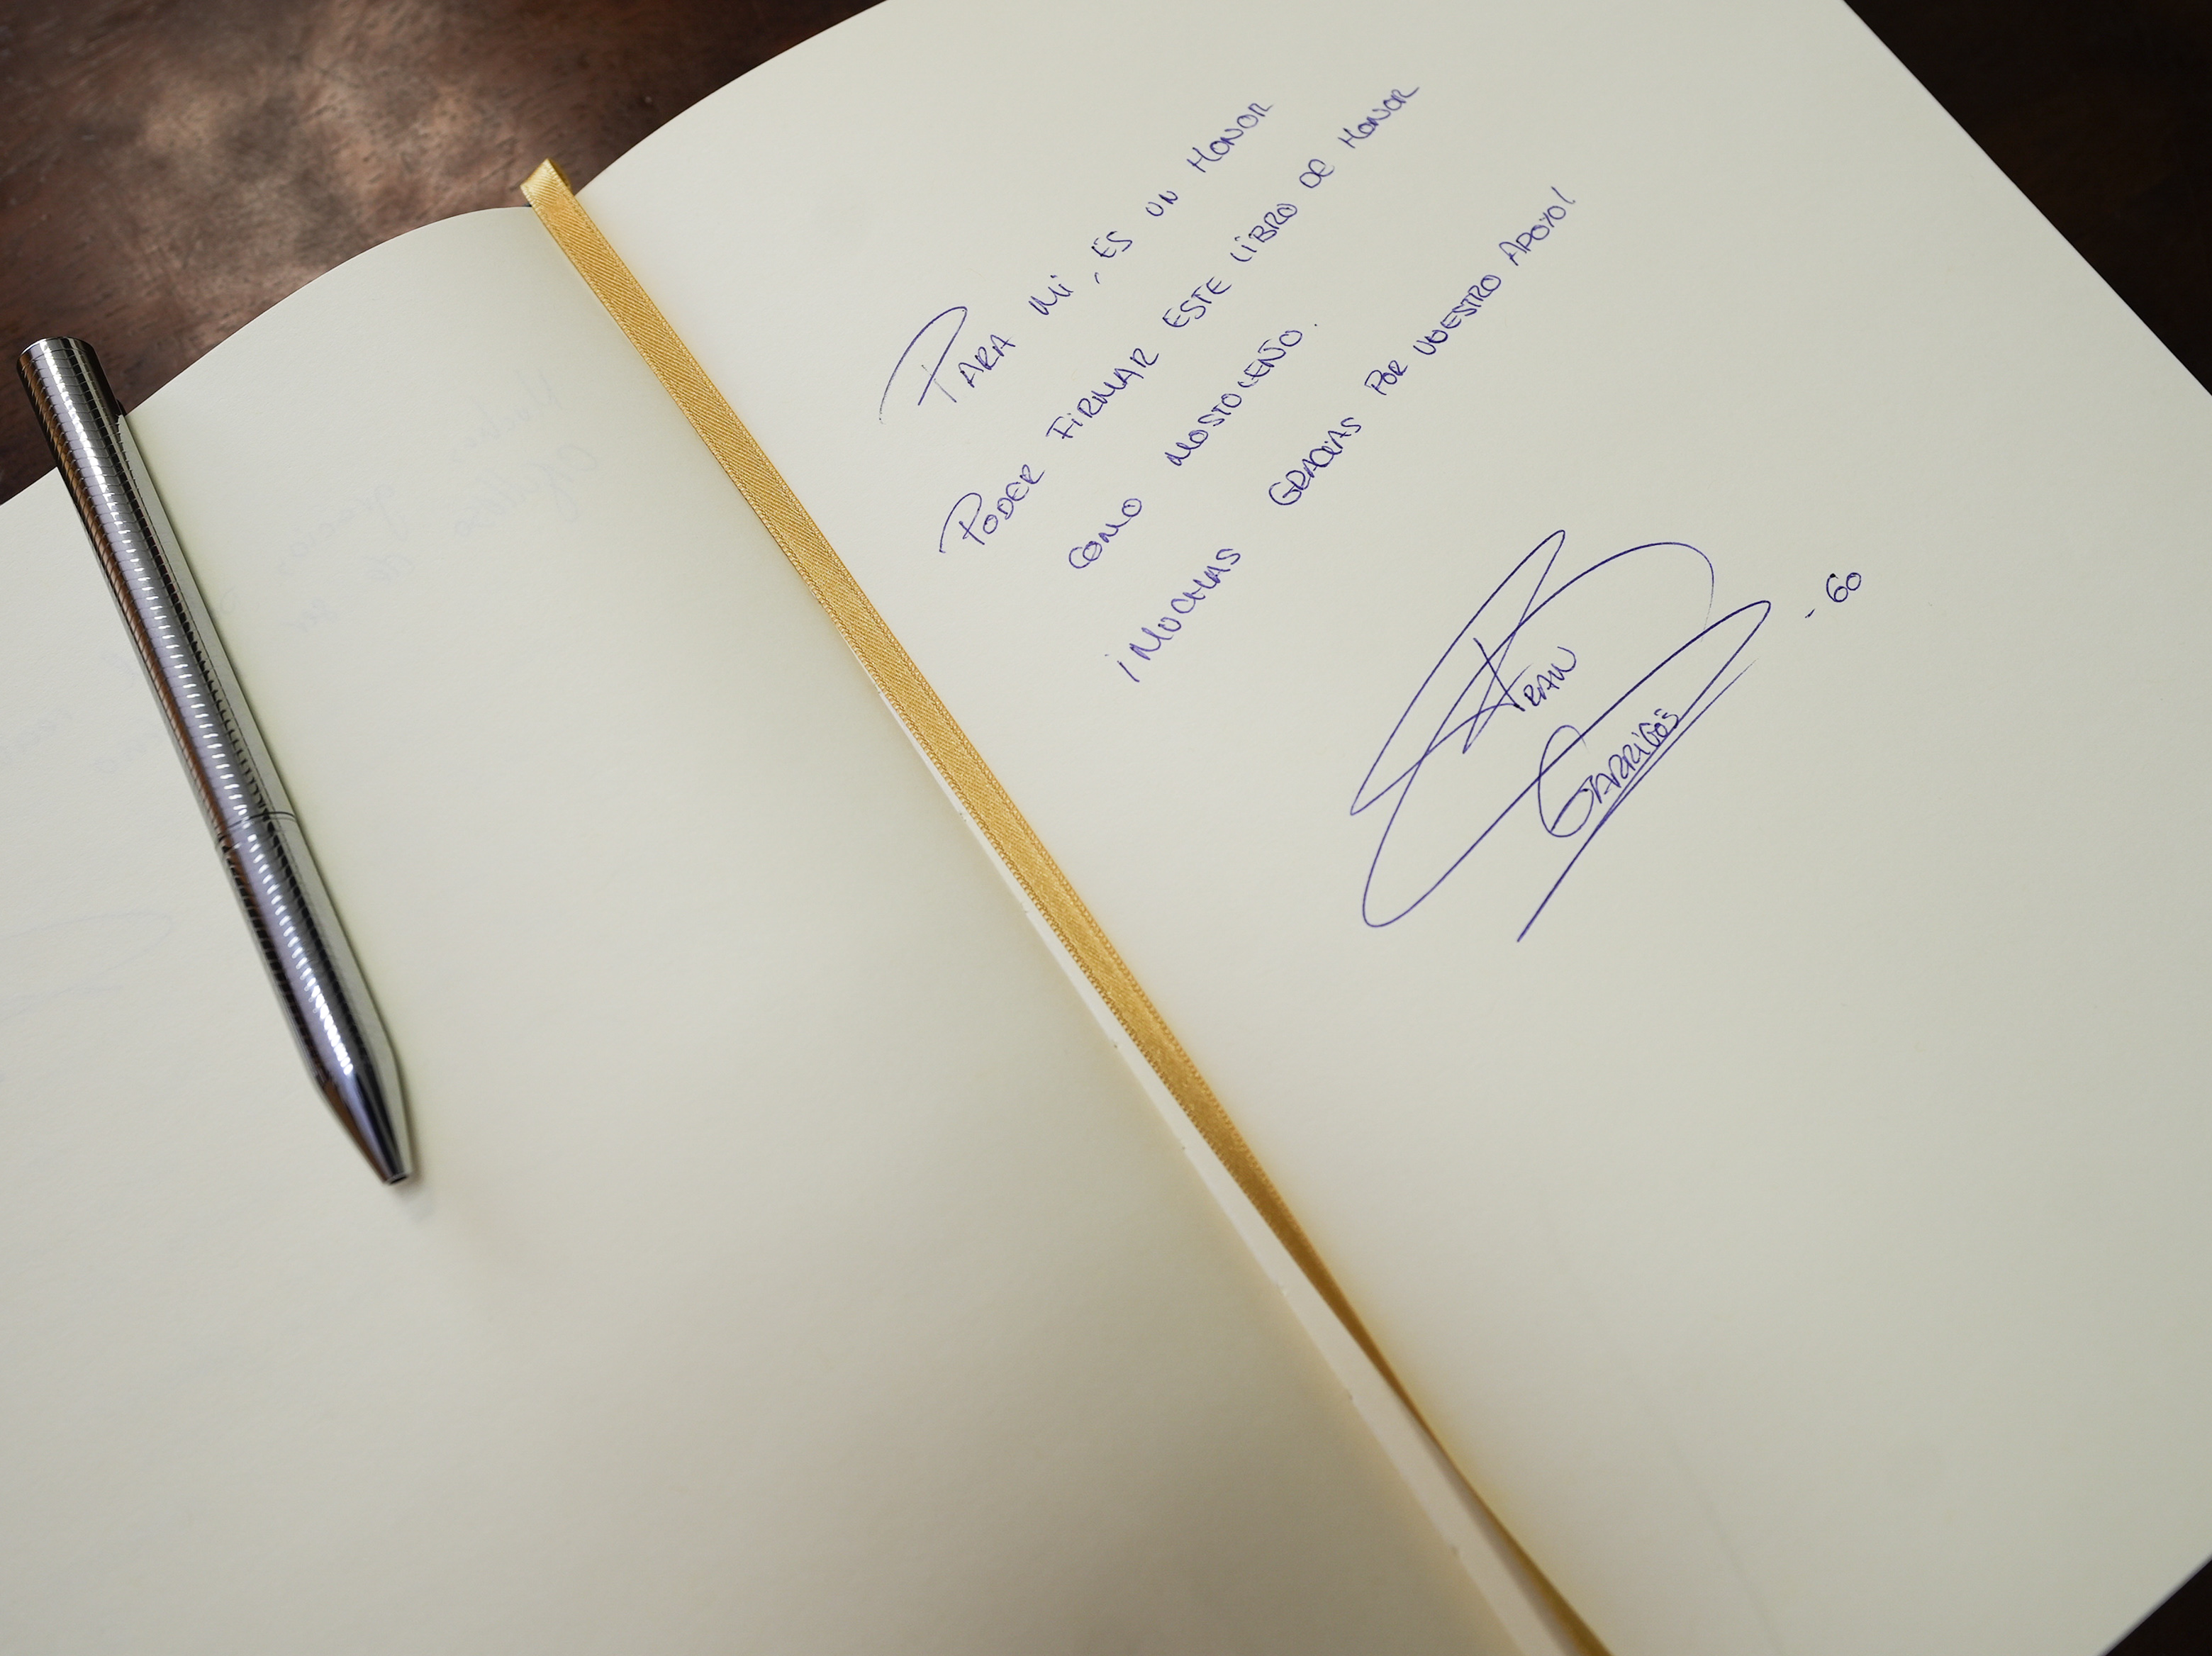 PARA MI, ES UN HONOR
PODER FIRMAR ESTE LIBRO DE HONOR
COMO MOSTOLEÑO.
¡MUCHAS GRACIAS POR VUESTRO APOYO!
FRAN
GARRIGÓS
-60